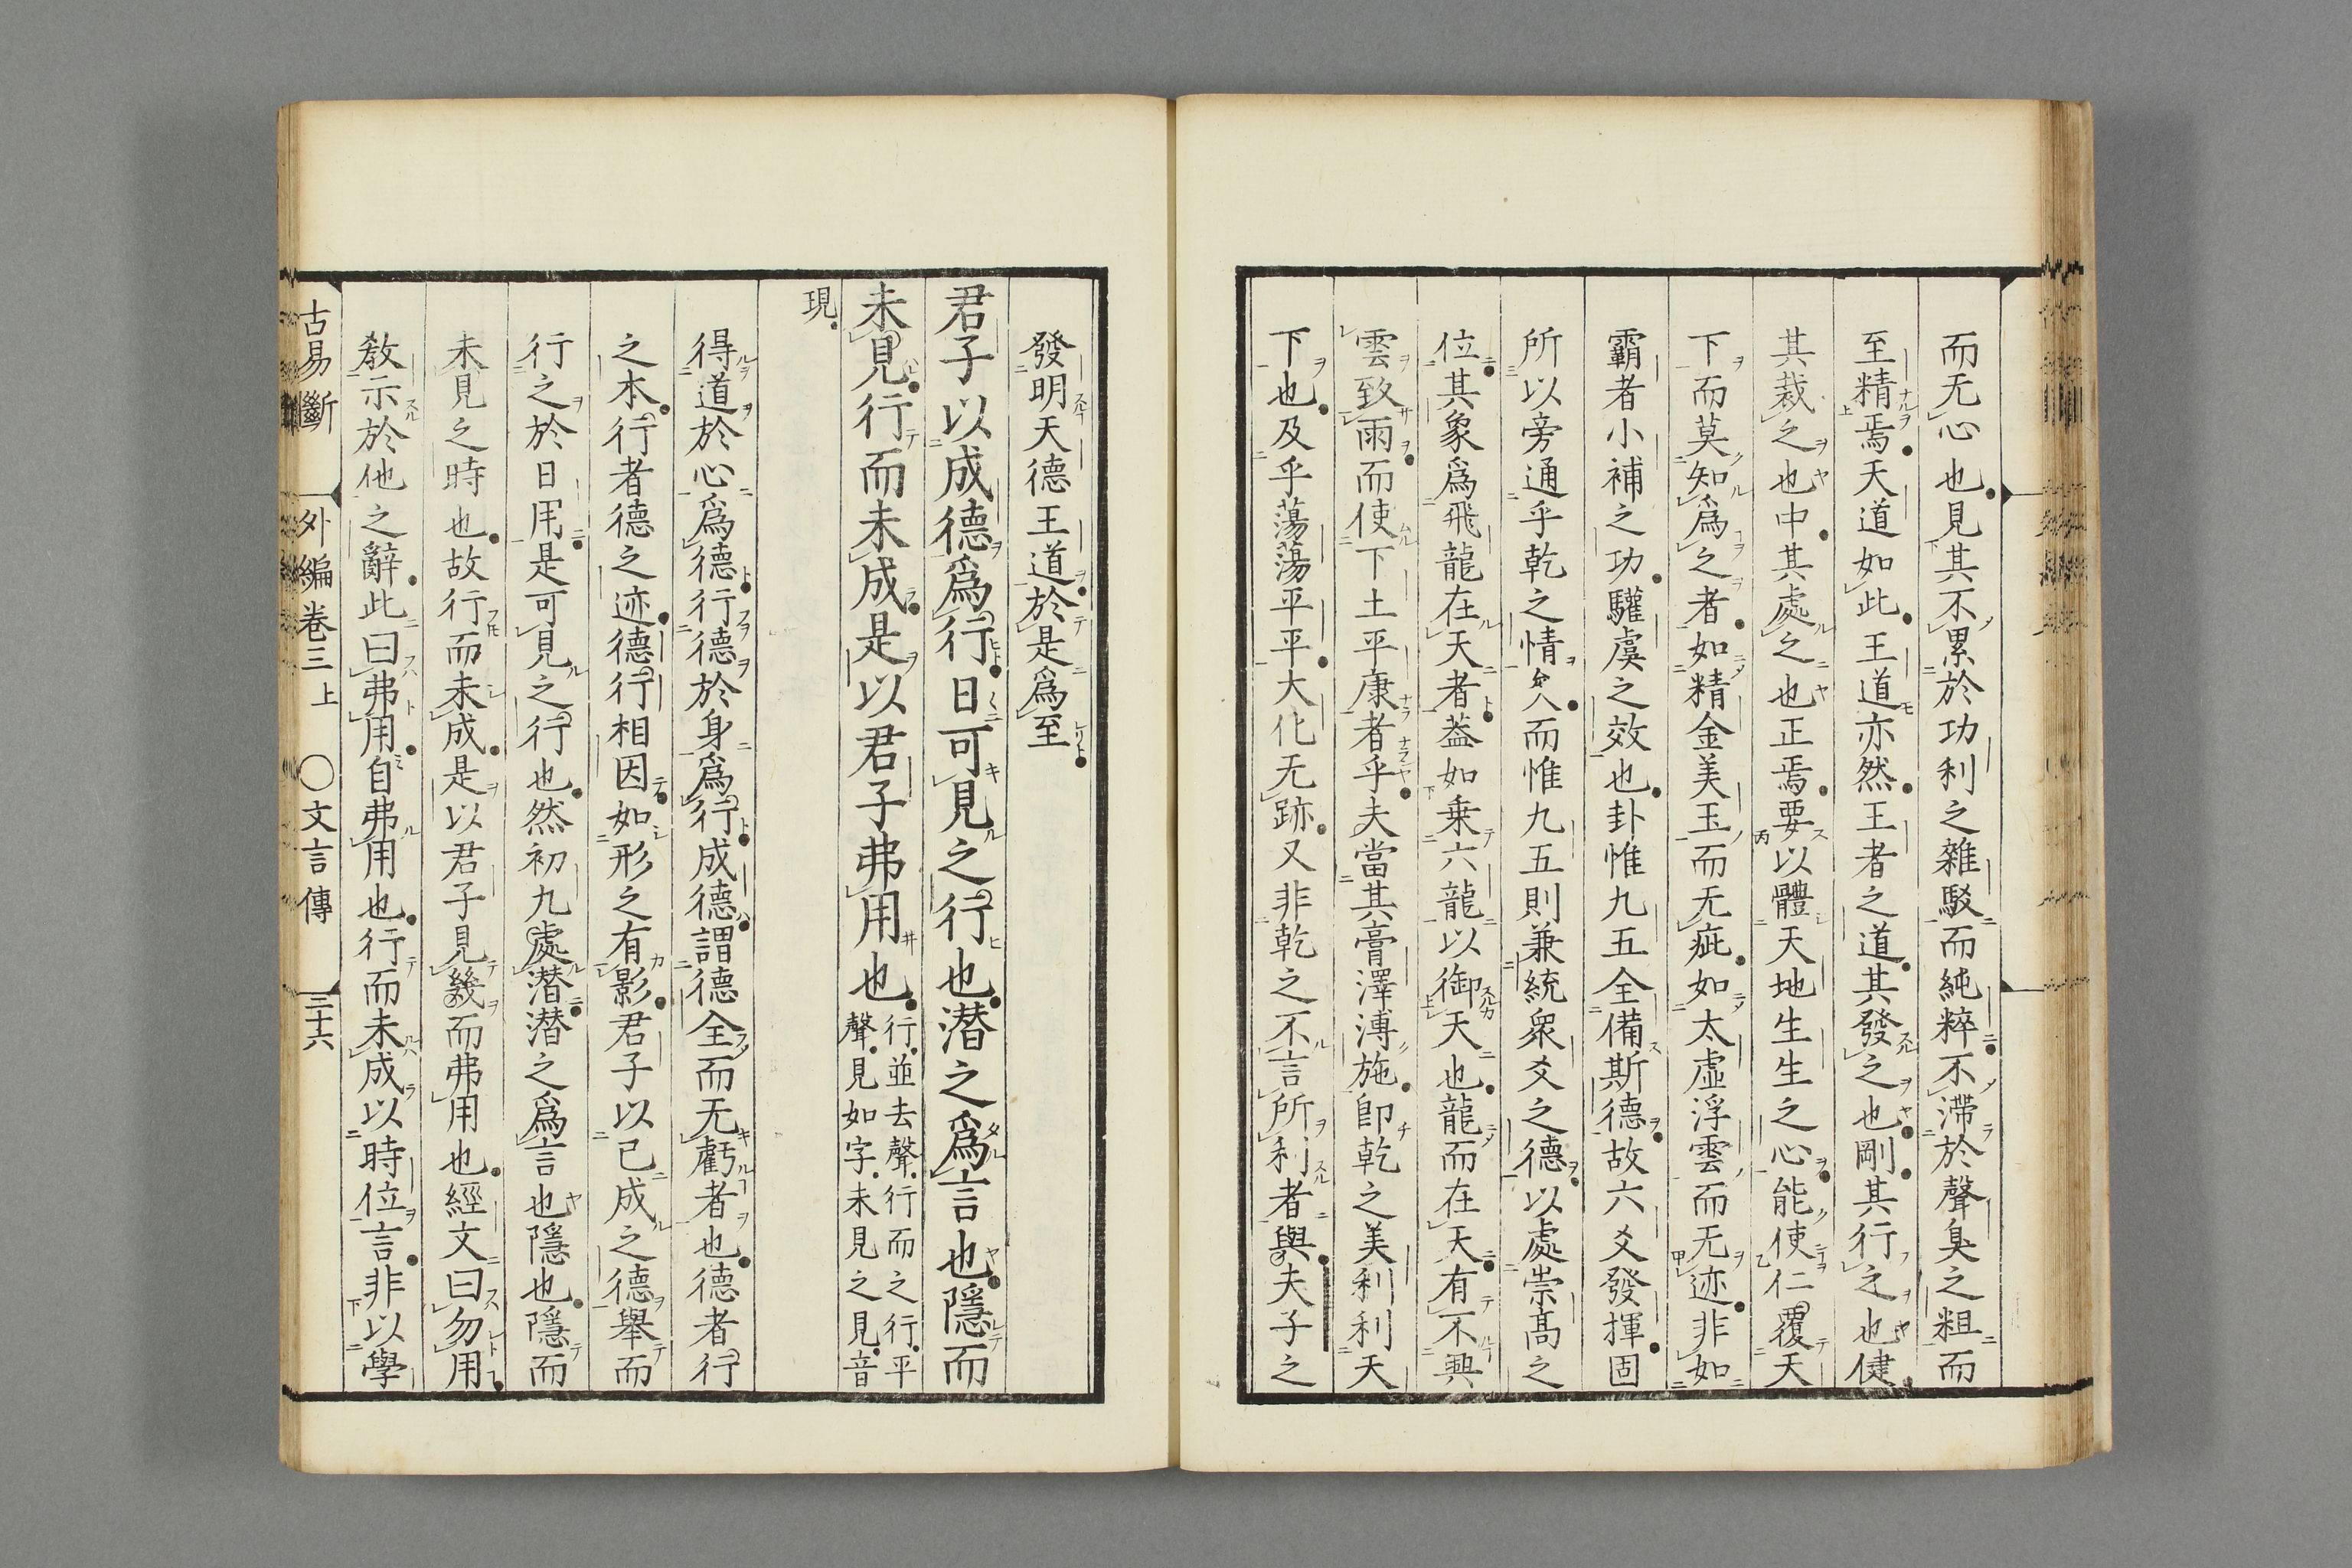 而无心也見其不累於功利之雜駁而純粹不滯於聲臭之粗而
至精焉天道如此王道亦然王者之道其發之也剛其行之也健
其裁之也中其處之也正焉要以體天地生生之心能使仁覆天
下而莫知爲之者如精金美玉而无疵如太虛浮雲而无迹非如
霸者小補之功驩虞之效也卦惟九五全備斯德故六爻發揮固
所以旁通乎乾之情矣而惟九五則兼統衆爻之德以處崇高之
位其象爲飛龍在天者蓋如乗六龍以御天也龍而在天有不興
雲致雨而使下土平康者乎夫當其膏澤溥施卽乾之美利利天
下也及乎蕩蕩平平大化无跡又非乾之不言所利者與夫子之
發明天德王道於是爲至
君子以成德爲行日可見之行也潜之爲言也隱而
未見行而未成是以君子弗用也行並去聲行而之行平
聲見如字未見之見音
現
得道於心爲德行德於身爲行成德謂德全而无虧者也德者行
之本行者德之迹德行相因如形之有影君子以已成之德舉而
行之於日用是可見之行也然初九處潜潜之爲言也隱也隱而
未見之時也故行而未成是以君子見幾而弗用也經文曰勿用
教示於他之辭此曰弗用自弗用也行而未成以時位言非以學
古易斷 外編卷三上 ○文言傳 三十六